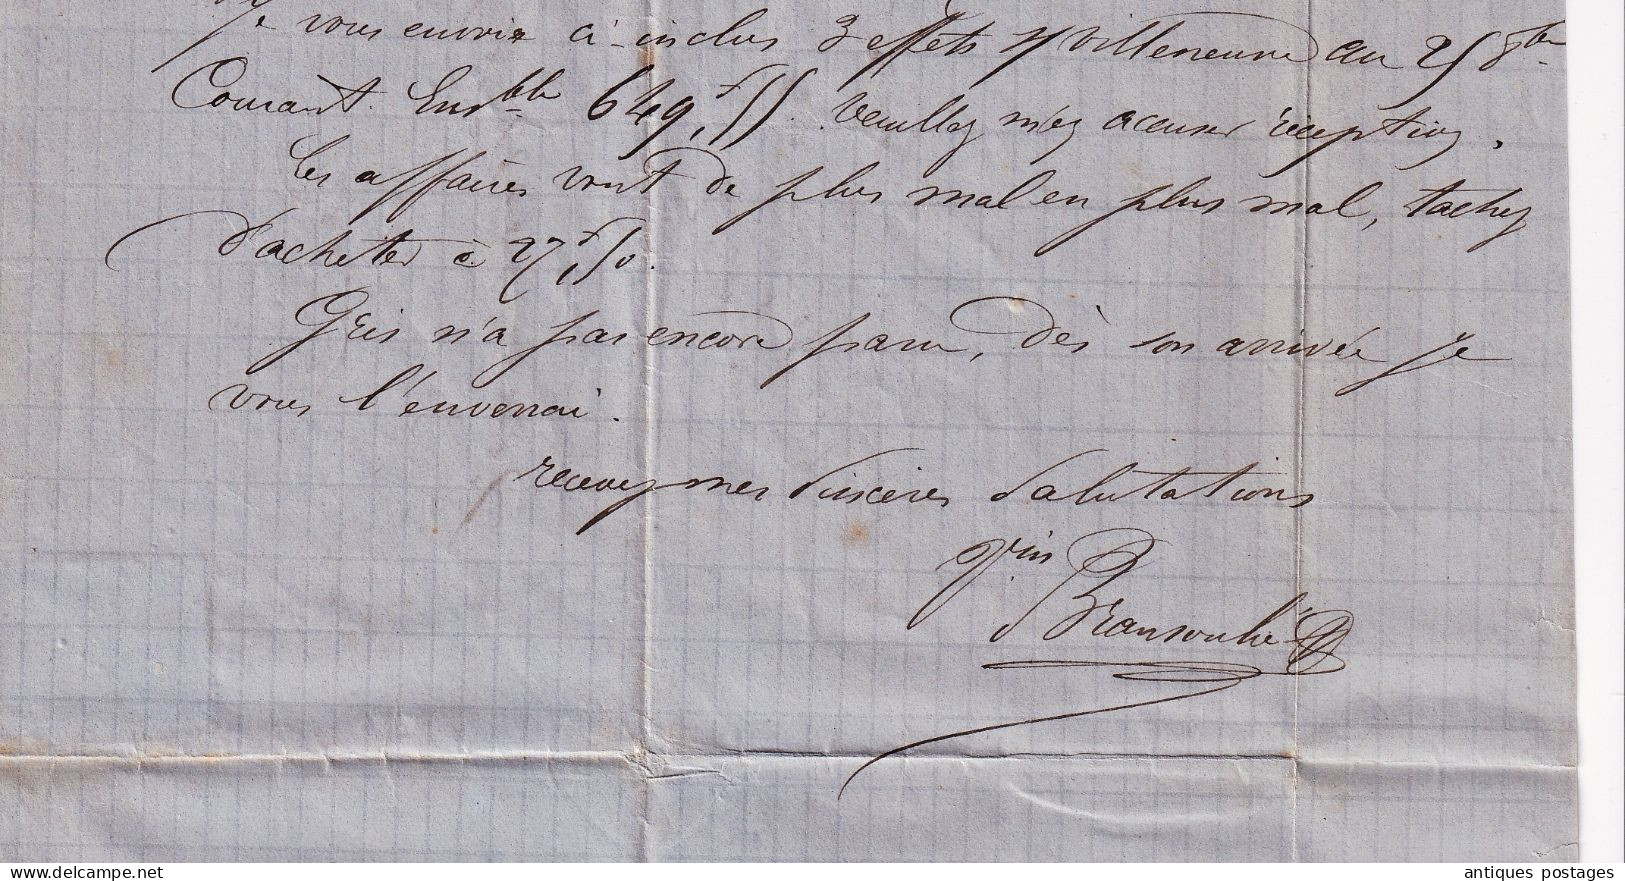 Je vous envoie ci-inclus 3 effets s/ Villeneuve au 25 8bre
Courant. Ensble 649,f55. Veuillez m'en accuser réception,
Les affaires vont de plus mal en plus mal, tachez
d'acheter à 27,f50.
Gris n'a pas encore paru, dès son arrivée je
vous l'enverrai.
recevez mes sincères salutations
Bransoulié
delcampe.net
antiques postages